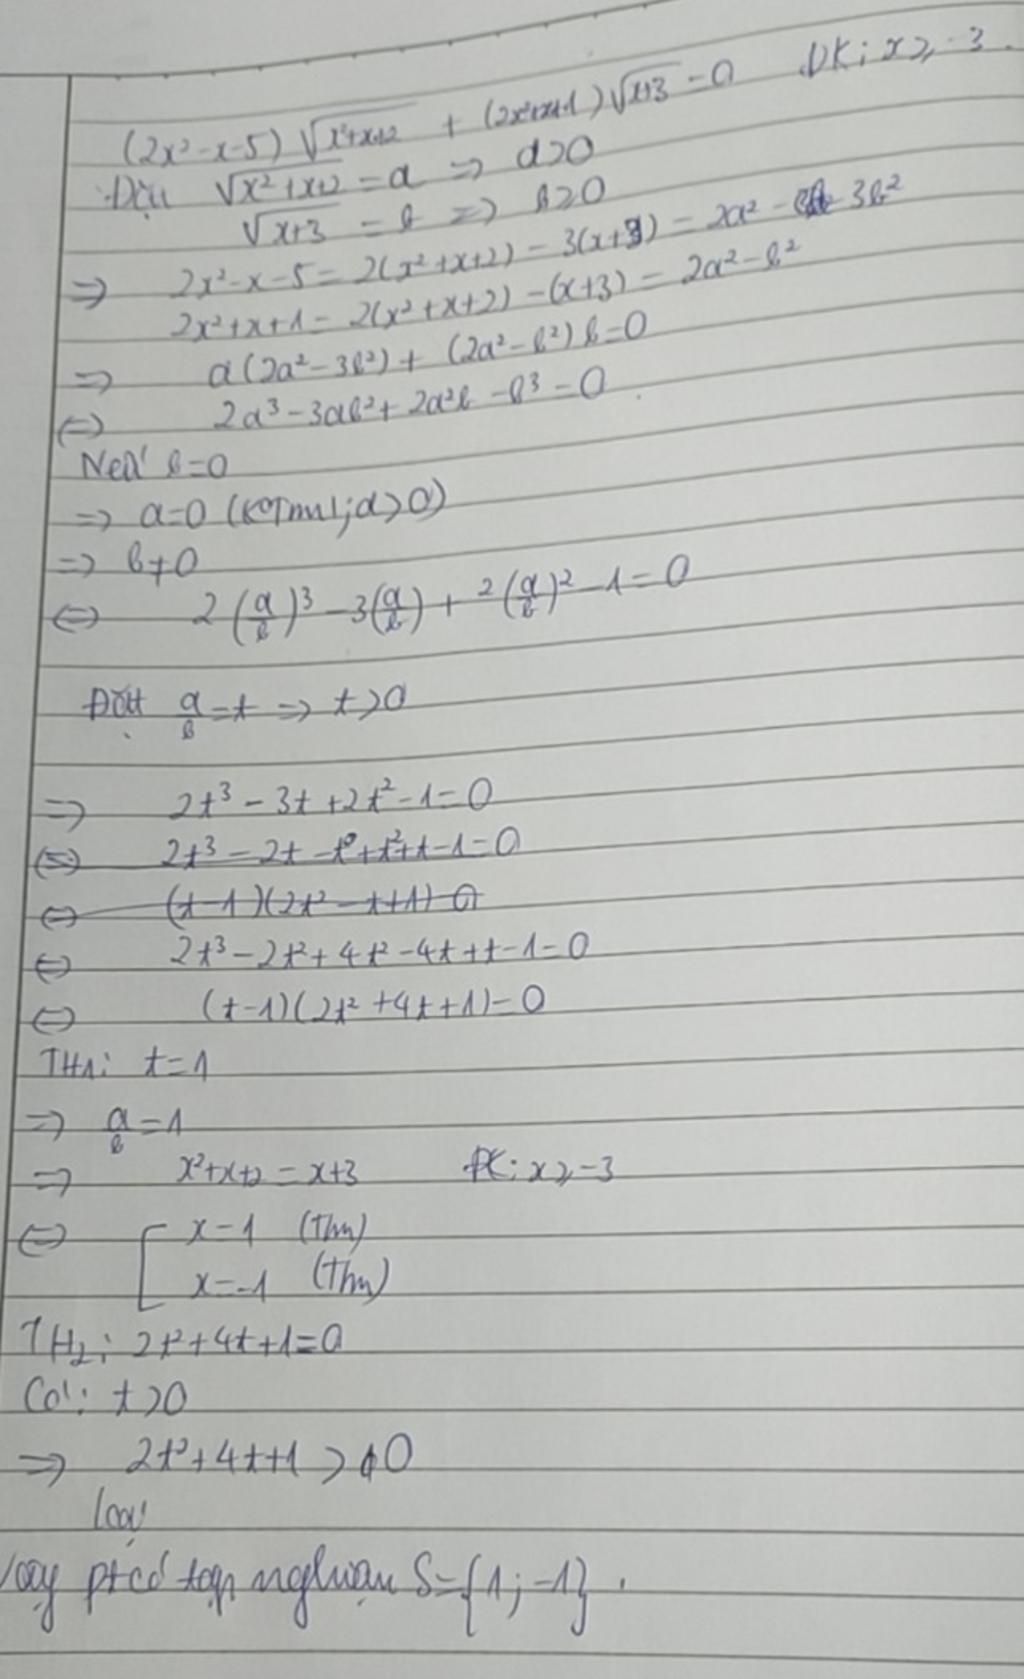 (2x² - x - 5) √x²+x+2 + (2x²+x+1) √x+3 = 0 ĐK: x ≥ -3.
Đặt √x²+x+2 = a => a>0
√x+3 = b => b≥0
=> 2x² - x - 5 = 2(x²+x+2) - 3(x+3) = 2a² - 3b²
2x²+x+1 = 2(x²+x+2) - (x+3) = 2a² - b²
=> a(2a² - 3b²) + (2a² - b²) b = 0
<=> 2a³ - 3ab² + 2a²b - b³ = 0
Nếu b=0
=> a=0 (KoTman; a>0)
=> b≠0
<=> 2(a/b)³ - 3(a/b) + 2(a/b)² - 1 = 0
Đặt a/b = t => t>0
=> 2t³ - 3t + 2t² - 1 = 0
<=> 2t³ - 2t + t² - 1 = 0
<=> (t-1)(2t² - t+1) = 0
<=> 2t³ - 2t² + 4t² - 4t + t - 1 = 0
<=> (t-1)(2t² + 4t + 1) = 0
TH1: t = 1
=> a/b = 1
=> x²+x+2 = x+3 ĐK: x ≥ -3
<=> [ x = 1 (Thm)
x = -1 (Thm)
TH2: 2t² + 4t + 1 = 0
Có: t>0
=> 2t² + 4t + 1 > 0
loại
Vậy pt có tập nghiệm S = {1; -1}.